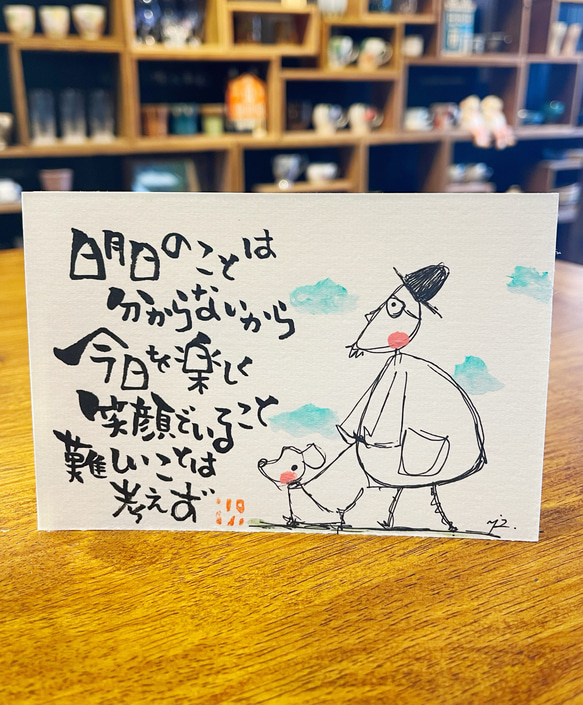 明日のことは
分からないから
今日を楽しく
笑顔でいること
難しいことは
考えず